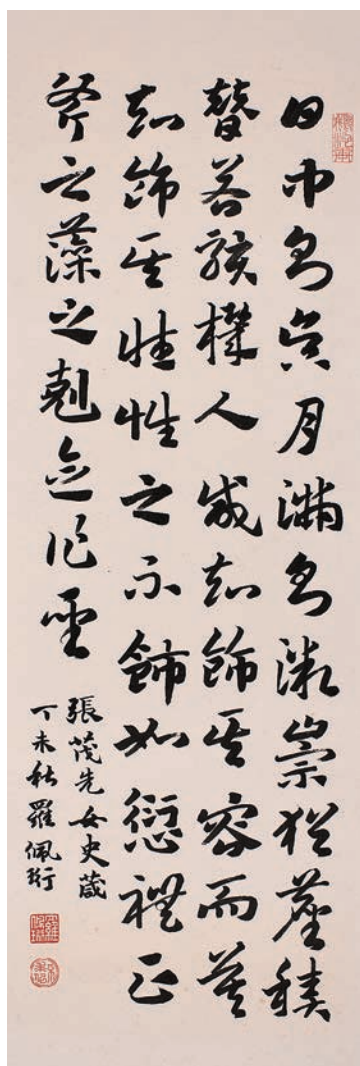 日中則昃月滿則微崇猶塵積
替若駭機人咸知飾其容而莫
知飾其性性之不飾如愆禮正
斧之藻之剋念作聖
張茂先女史箴
丁未秋羅佩珩